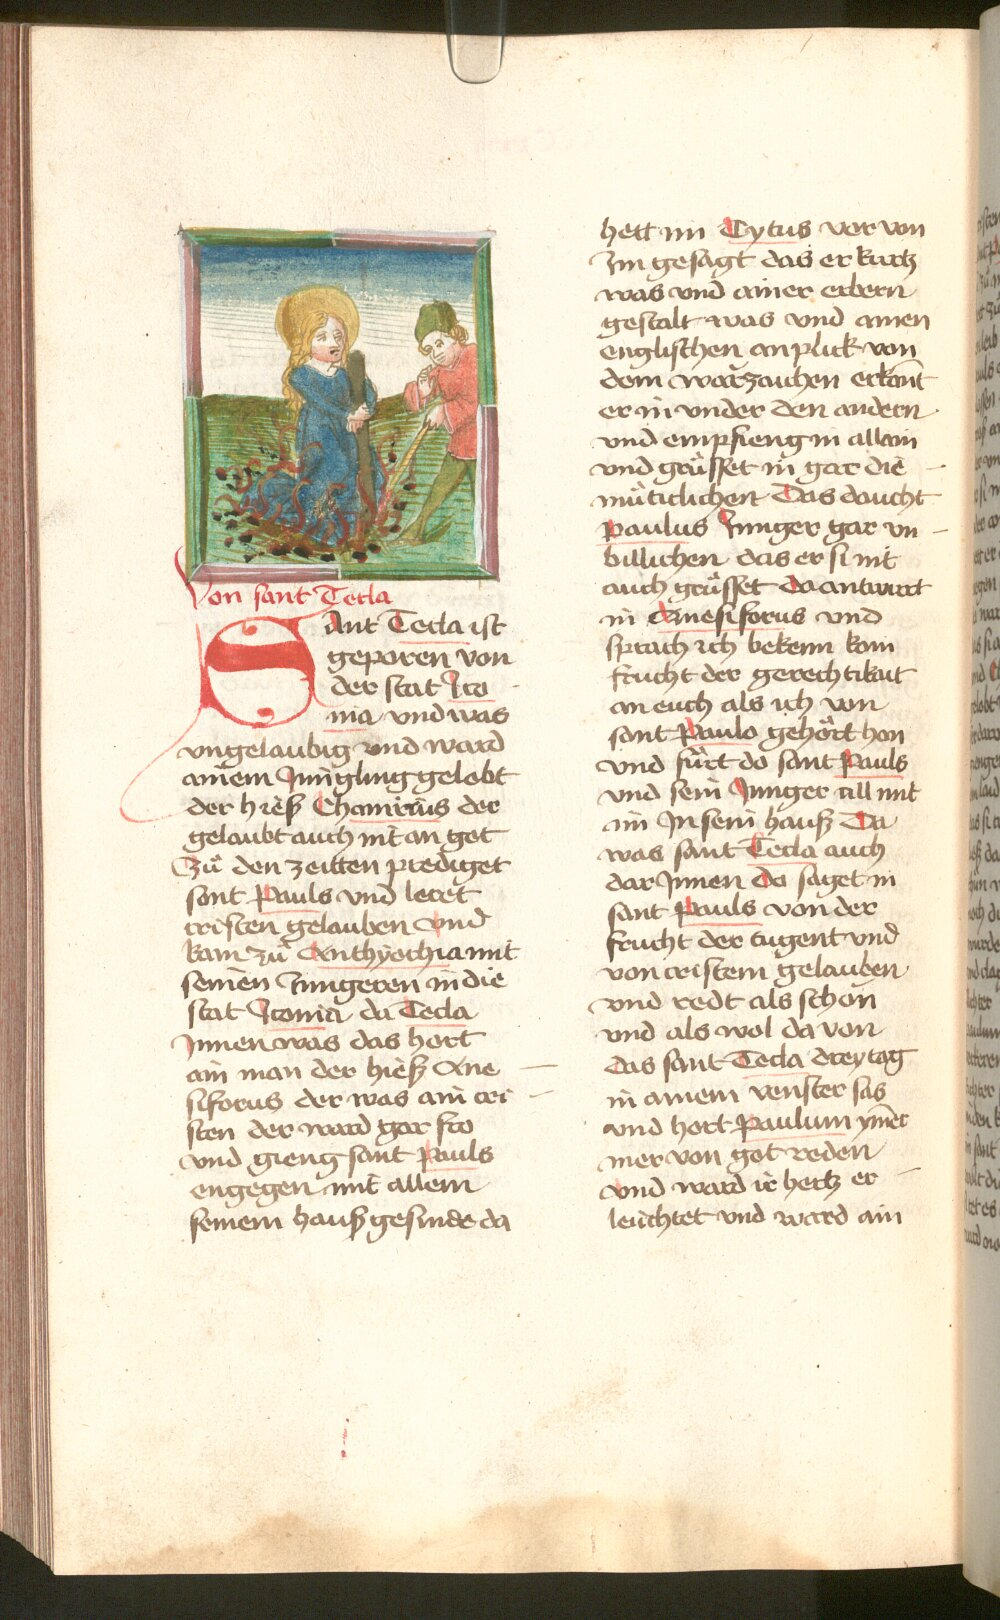 Von sant Tecla
Sant Tecla ist
geporen von
der stat Ico
nia und was
ungelaubig und ward
ainem Jungling gelobt
der hieß Chamirus der
gelaubt auch nit an got
Zů den zeitten prediget
sant Pauls und leret
cristen gelauben und
kam zů Anthyochia mit
seinen Jungeren in die
stat Iconia da Tecla
Jnnen was das hort
ain man der hieß One
siforus der was ain cri
sten der ward gar fro
und gieng sant Pauls
engegen mit allem
seinem haußgesinde da
hett im Tytus vor von
Im gesagt das er kurtz
was und ainer erbern
gestalt was und ainen
englischen anplick von
dem warzaichen erkant
er in under den andern
und empfieng in allain
und grüsset in gar die
mütiklichen Das daucht
Paulus Junger gar un
billichen das er si nit
auch grüsset do antwurt
in Onesiforus und
sprach ich bekenn kain
frucht der gerechtikait
an euch als ich von
sant Paulo gehört hon
und fürt do sant Pauls
und sein Junger all mit
im Jn sein hauß Da
was sant Tecla auch
dar Jnnen do saget in
sant Pauls von der
frucht der tugent und
von cristem gelauben
und redt als schon
und als wol da von
das sant Tecla drey tag
in ainem venster sas
und hort Paulum ymer
mer von got reden
und ward ir hertz er
leuchtet und ward ain